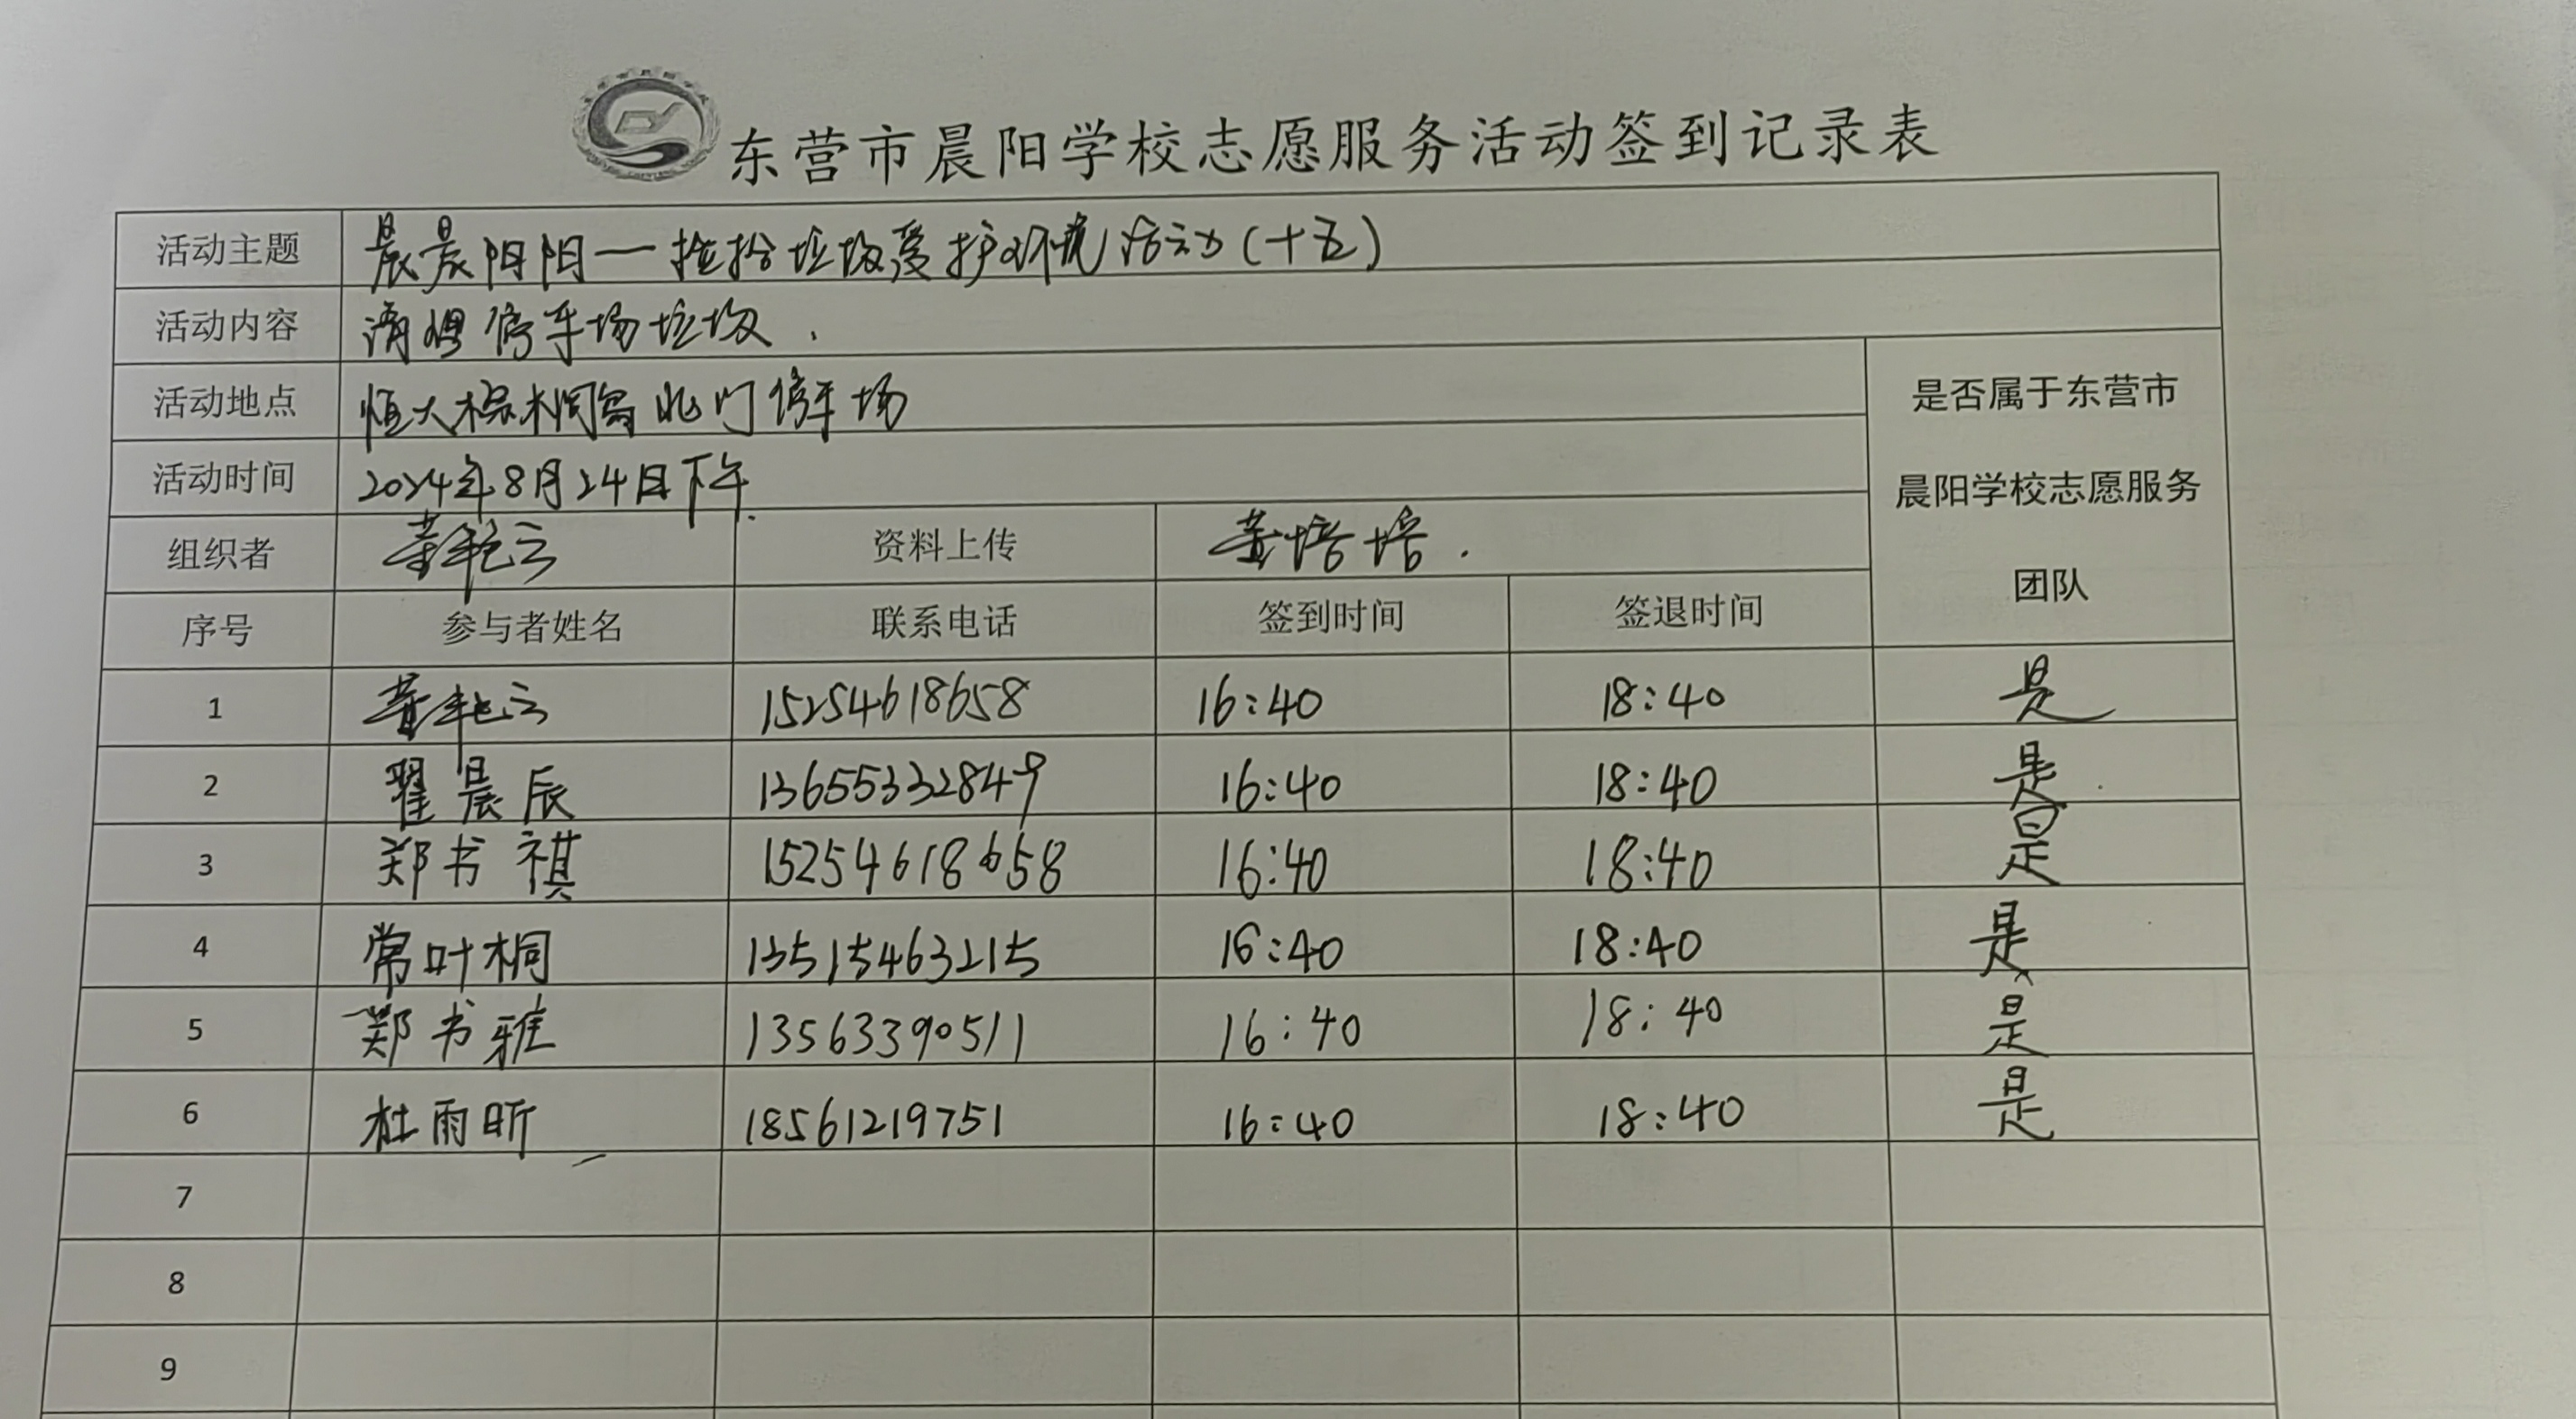 东营市晨阳学校志愿服务活动签到记录表
活动主题 晨晨阳阳一捡拾垃圾爱护环境活动(十五)
活动内容 清理停车场垃圾.
活动地点 恒大棕榈岛北门停车场
是否属于东营市
晨阳学校志愿服务
团队
活动时间 2024年8月24日下午.
组织者 董艳云 资料上传 黄培培.
序号 参与者姓名 联系电话 签到时间 签退时间
1 董艳云 15254618658 16:40 18:40 是
2 翟晨辰 13655332849 16:40 18:40 是.
3 郑书祺 15254618658 16:40 18:40 是
4 常叶桐 13515463215 16:40 18:40 是
5 郑书雅 13563390511 16:40 18:40 是
6 杜雨昕 18561219751 16:40 18:40 是
7
8
9